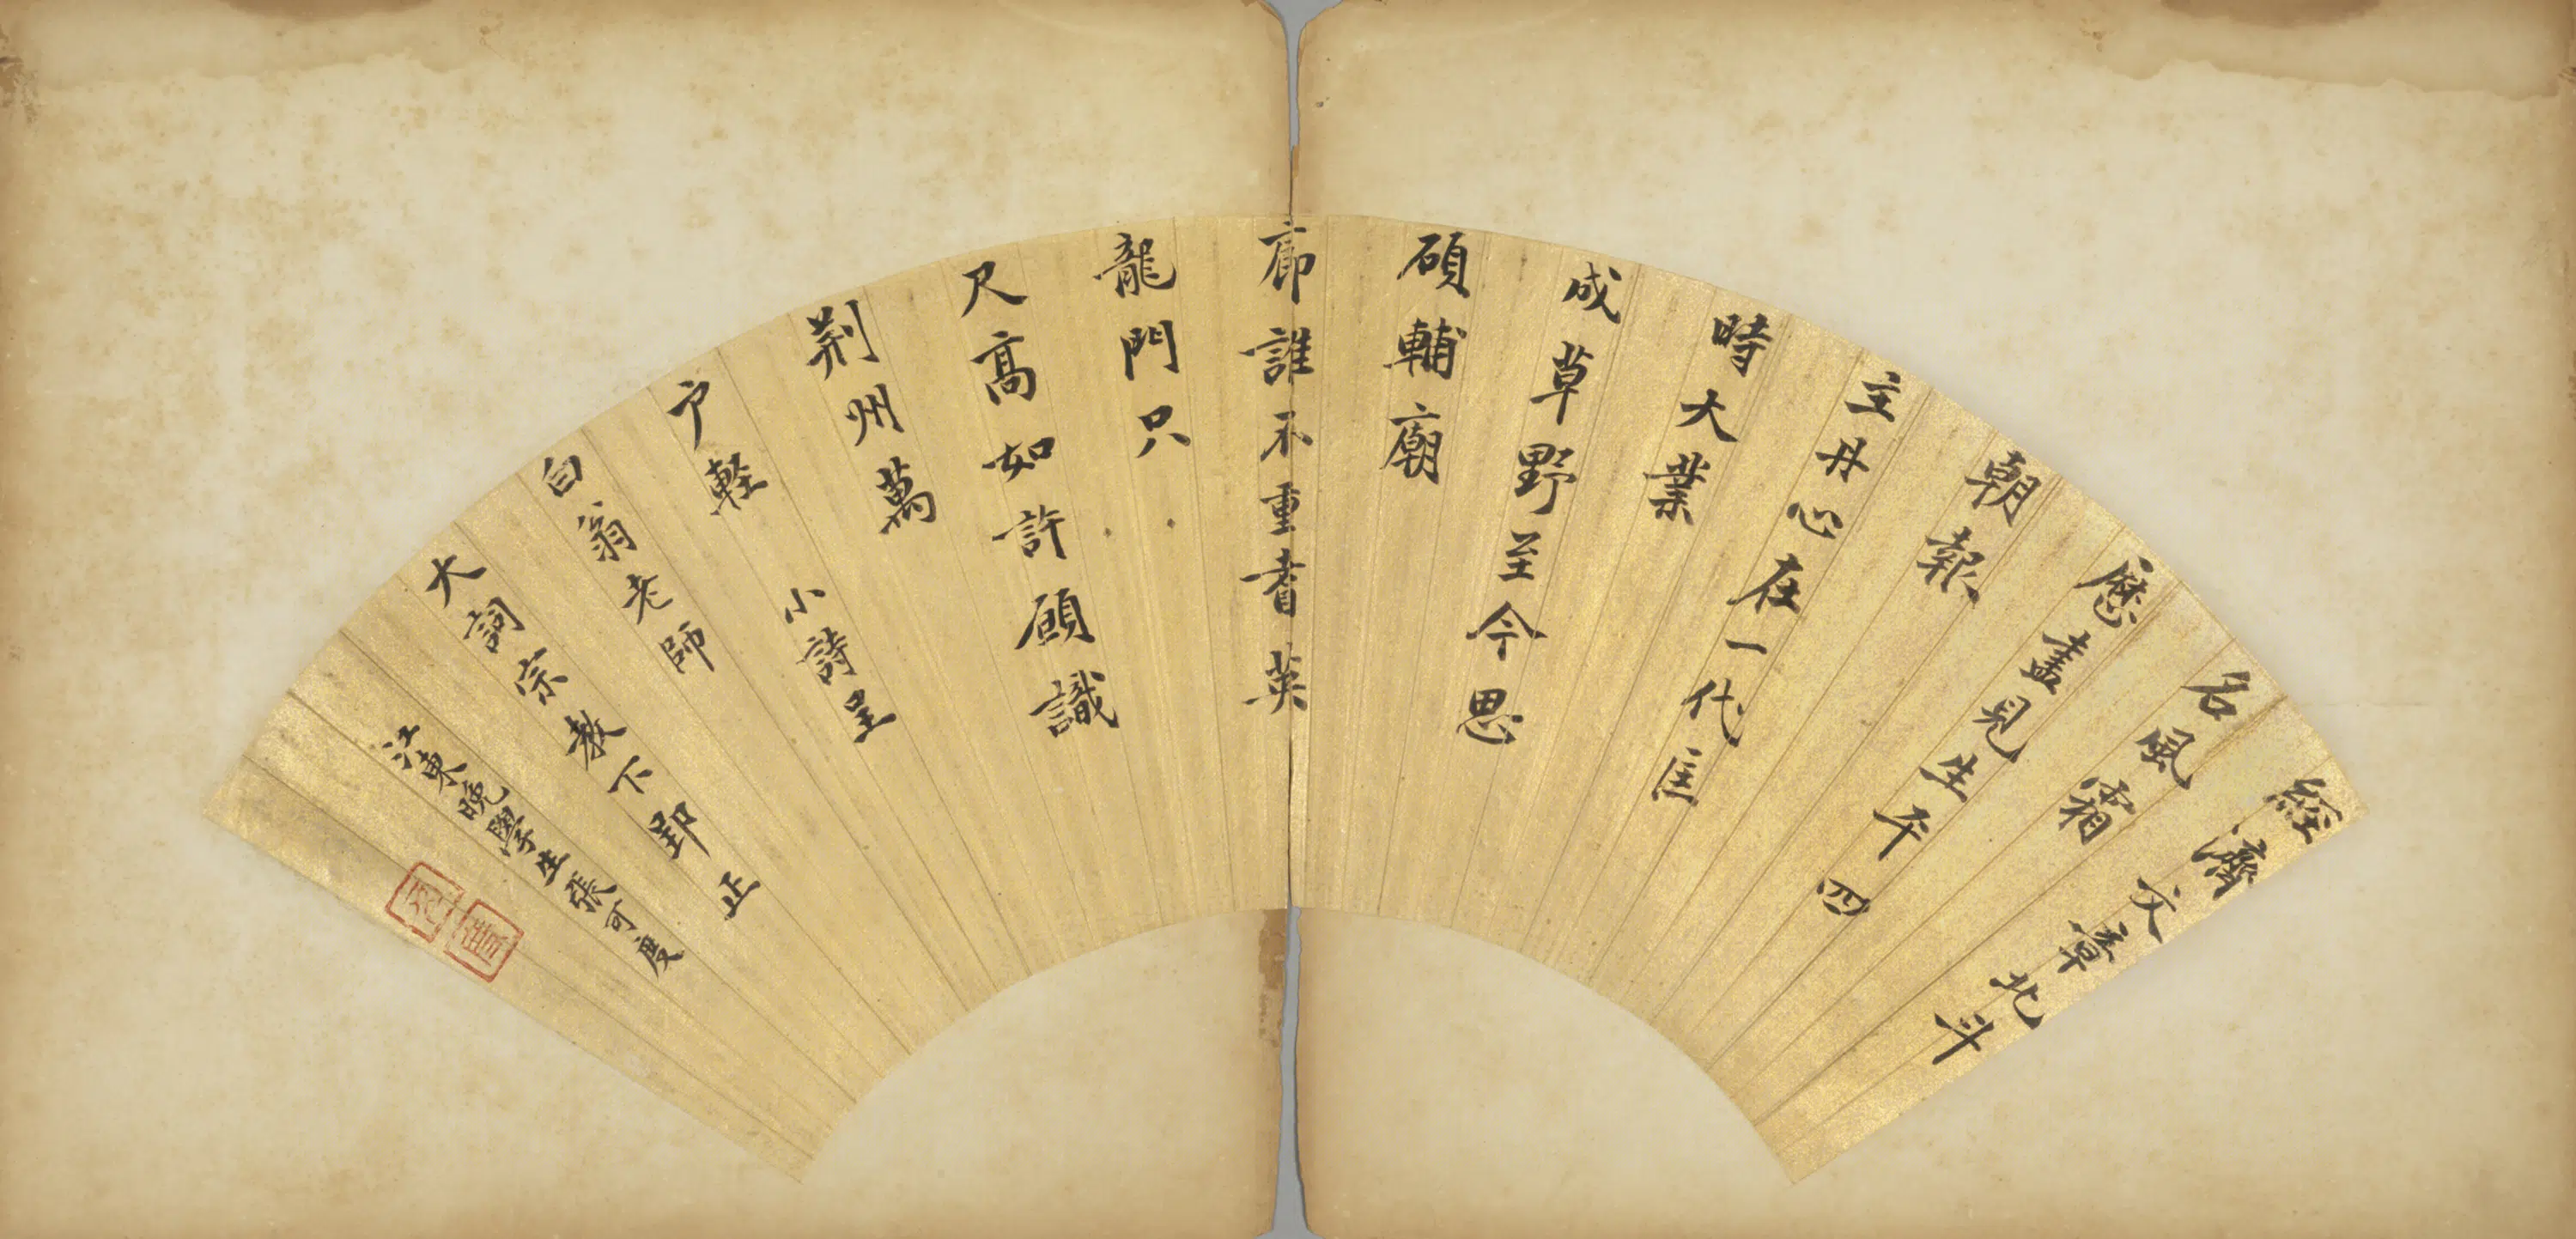 經濟文章北斗
名風霜
歷盡見生平四
朝報
主丹心在一代匡
時大業
成草野至今思
碩輔廟
廊誰不重耆英
龍門只
尺高如許願識
荆州萬
户輕
小詩呈
白翁老師
大詞宗教下郢正
江東晚學生張可度